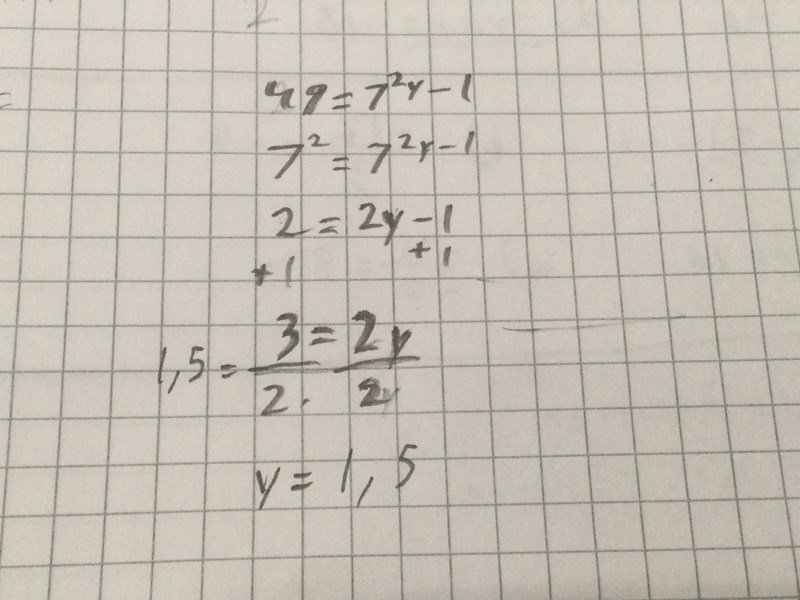 49 = 7^{2y-1}
7² = 7^{2y-1}
2 = 2y - 1
+1 +1
3 = 2y
1,5 =
2 2
y = 1,5